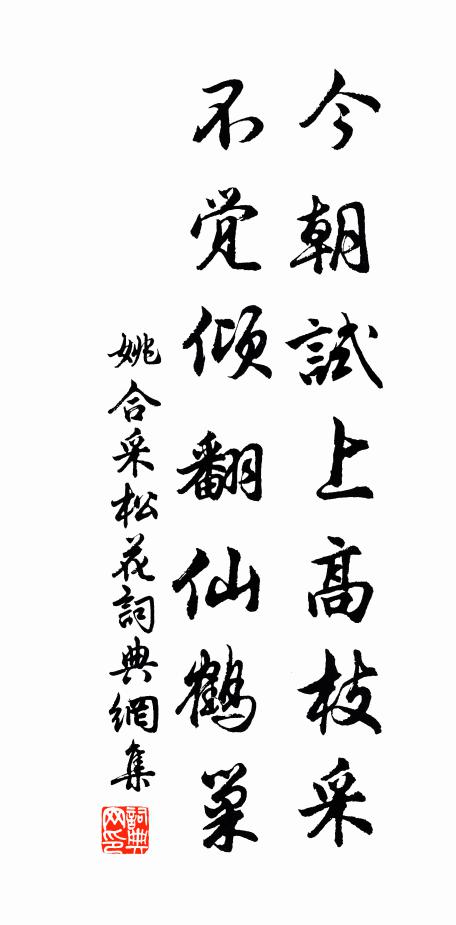 今朝試上高枝采
不覚傾翻仙鶴巢
姚合采松花詞典網集
詞典网印